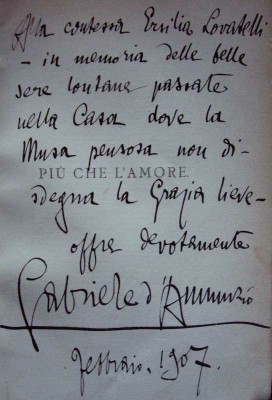 Alla contessa Ersilia Lovatelli
- in memoria delle belle
sere lontane passate
nella Casa dove la
Musa pensosa non di-
PIÙ CHE L'AMORE.
sdegna la Grazia lieve-
offre devotamente
Gabriele d'Annunzio
febbraio. 1907.